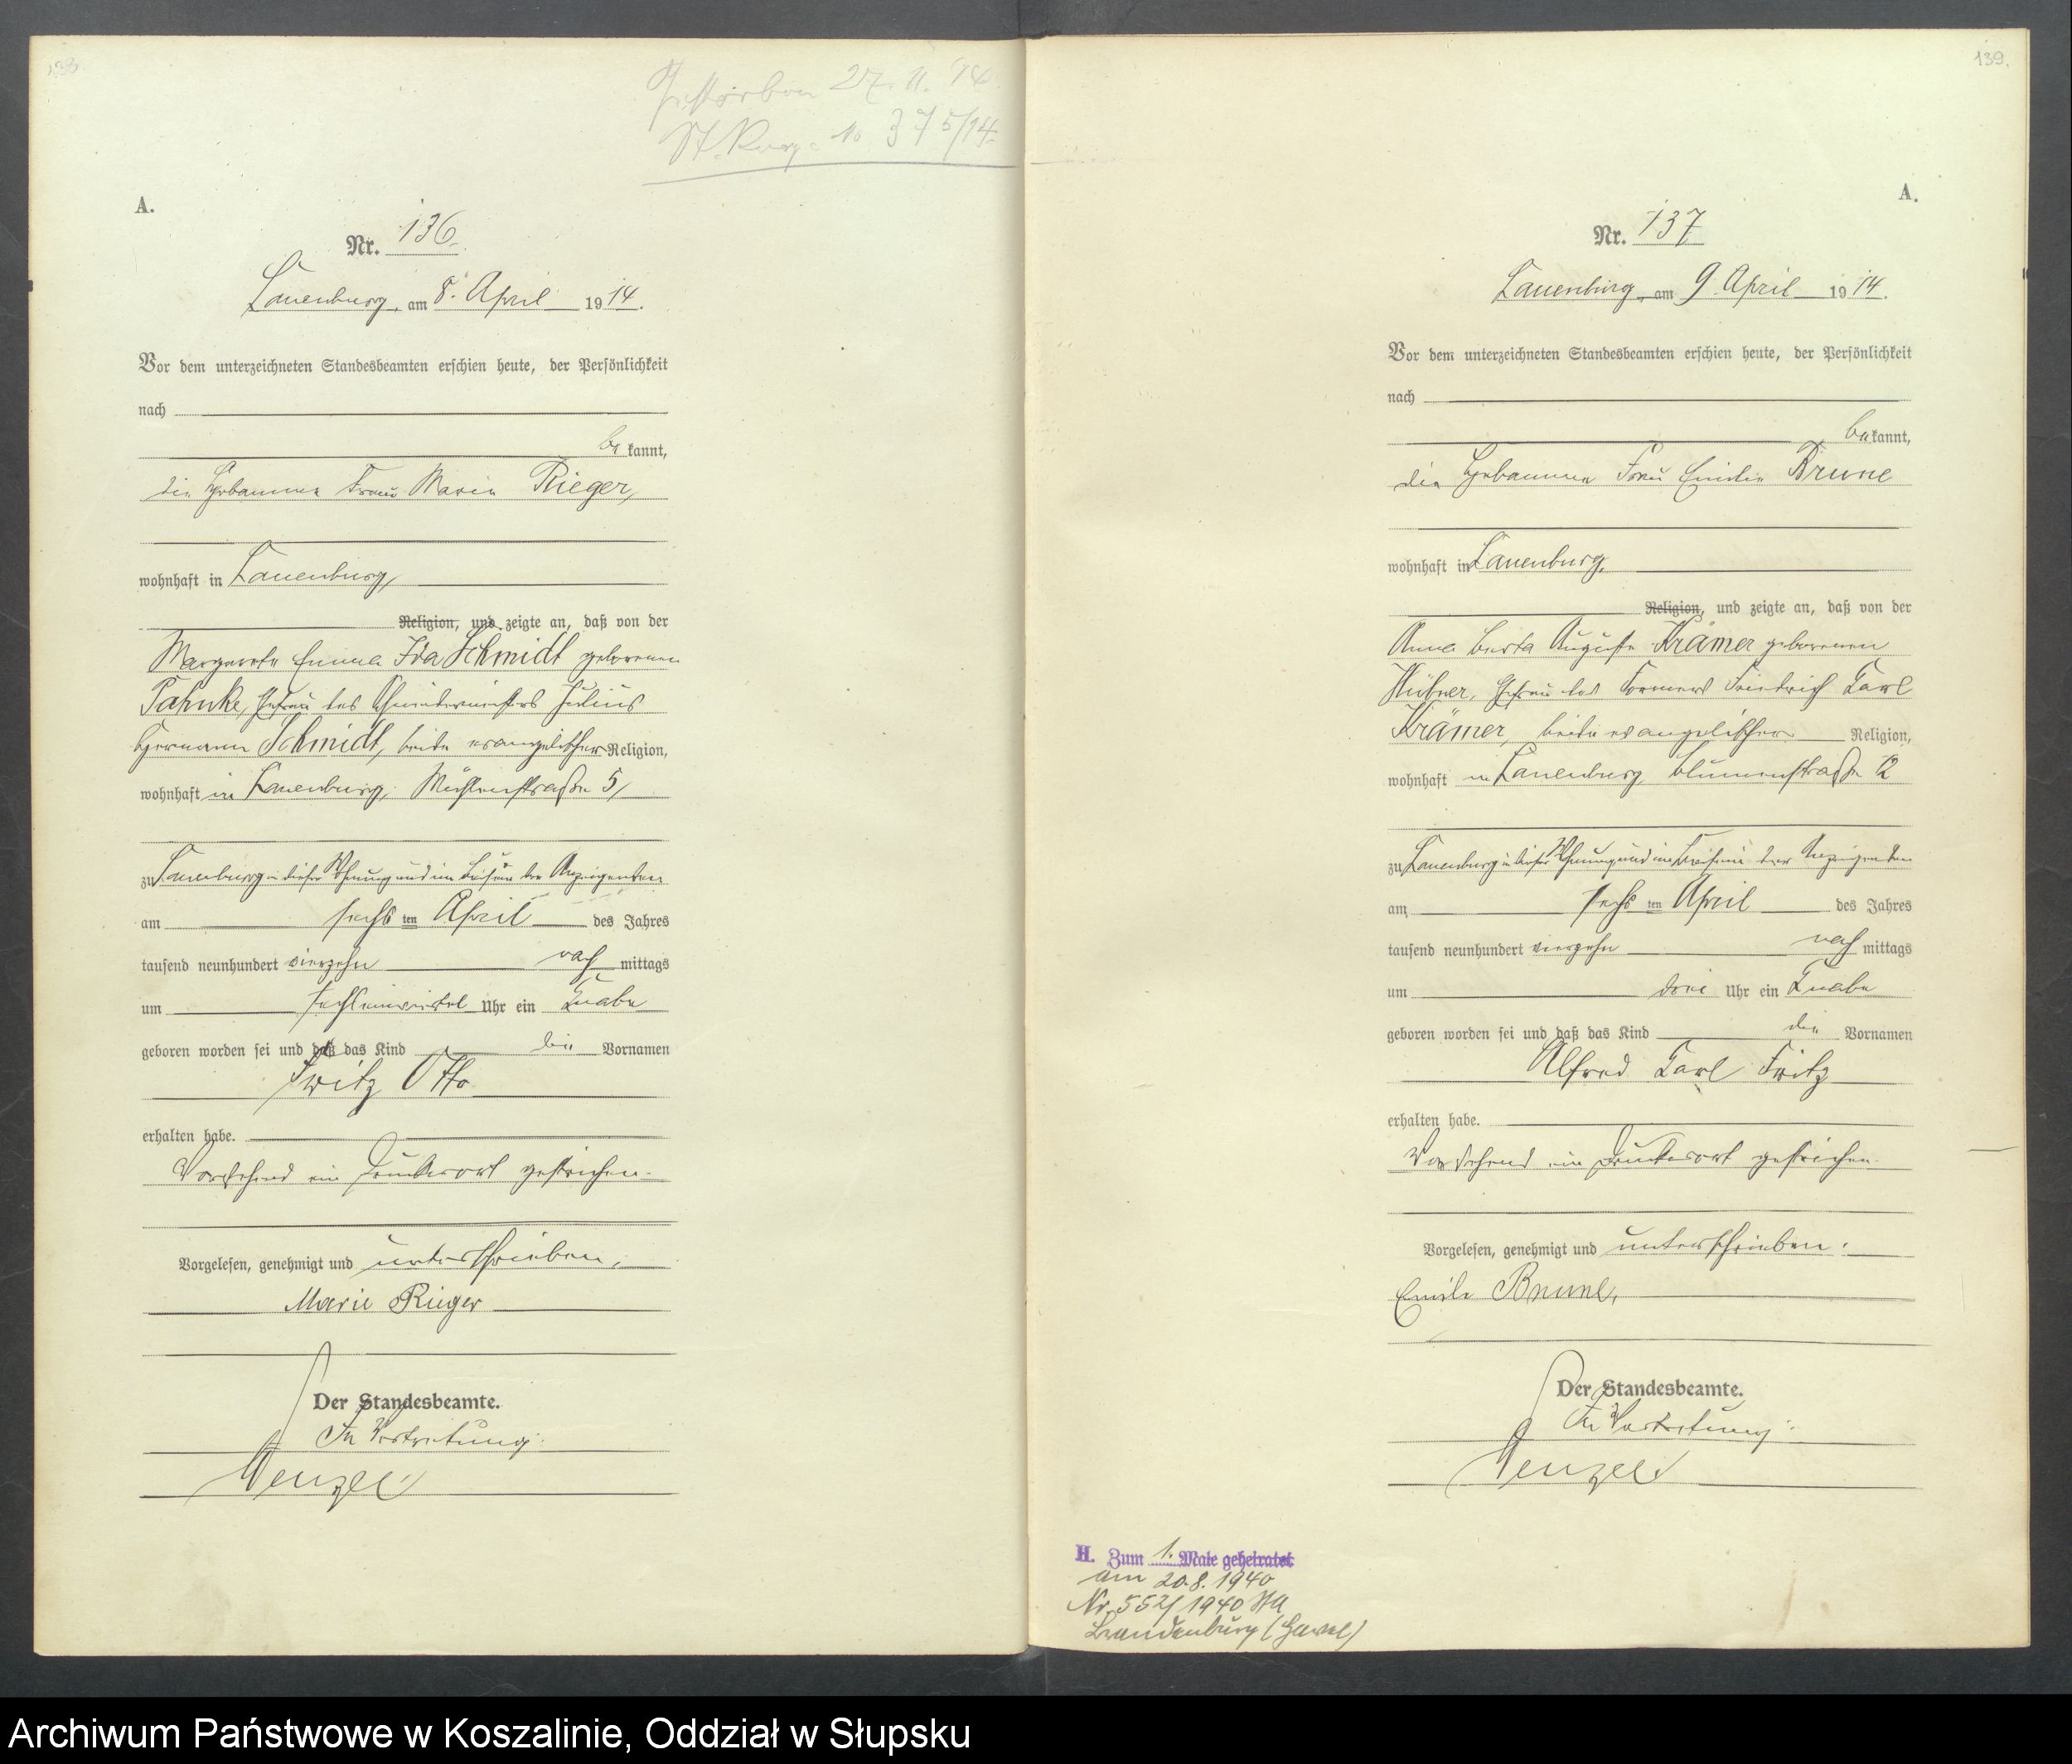 138.
Gestorben 27. 11. 14.
St. Reg. No 375/14.
A.
Nr. 136.
Lauenburg, am 8. April 1914.
Vor dem unterzeichneten Standesbeamten erschien heute, der Persönlichkeit
nach
be kannt,
die Hebamme Frau Marie Rieger,
wohnhaft in Lauenburg,
Religion, und zeigte an, daß von der
Margarete Emma Ida Schmidt geborenen
Jahnke, Ehefrau des Schneidermeisters Julius
Hermann Schmidt, beide evangelischer Religion,
wohnhaft in Lauenburg, Mühlenstraße 5,
zu Lauenburg in dieser Wohnung und im Beisein der Anzeigenden
am sechs ten April des Jahres
tausend neunhundert vierzehn nach mittags
um sechseinviertel Uhr ein Knabe
geboren worden sei und daß das Kind die Vornamen
Fritz Otto
erhalten habe.
Vorstehend ein Druckwort gestrichen.
Vorgelesen, genehmigt und unterschrieben,
Marie Rieger
Der Standesbeamte.
In Vertretung:
Wenzel
139.
A.
Nr. 137
Lauenburg, am 9. April 1914.
Vor dem unterzeichneten Standesbeamten erschien heute, der Persönlichkeit
nach
be kannt,
die Hebamme Frau Emilie Brune
wohnhaft in Lauenburg,
Religion, und zeigte an, daß von der
Anna Berta Auguste Krämer geborenen
Hübner, Ehefrau des Formers Friedrich Karl
Krämer, beide evangelischer Religion,
wohnhaft in Lauenburg, Blumenstraße 12
zu Lauenburg in dieser Wohnung und im Beisein der Anzeigenden
am sechs ten April des Jahres
tausend neunhundert vierzehn nach mittags
um drei Uhr ein Knabe
geboren worden sei und daß das Kind die Vornamen
Alfred Karl Fritz
erhalten habe.
Vorstehend ein Druckwort gestrichen.
Vorgelesen, genehmigt und unterschrieben:
Emilie Brune,
Der Standesbeamte.
In Vertretung:
Wenzel
H. Zum 1. Male geheiratet
am 20.8.1940
Nr. 552/1940 StA
Brandenburg (Havel)
Archiwum Państwowe w Koszalinie, Oddział w Słupsku